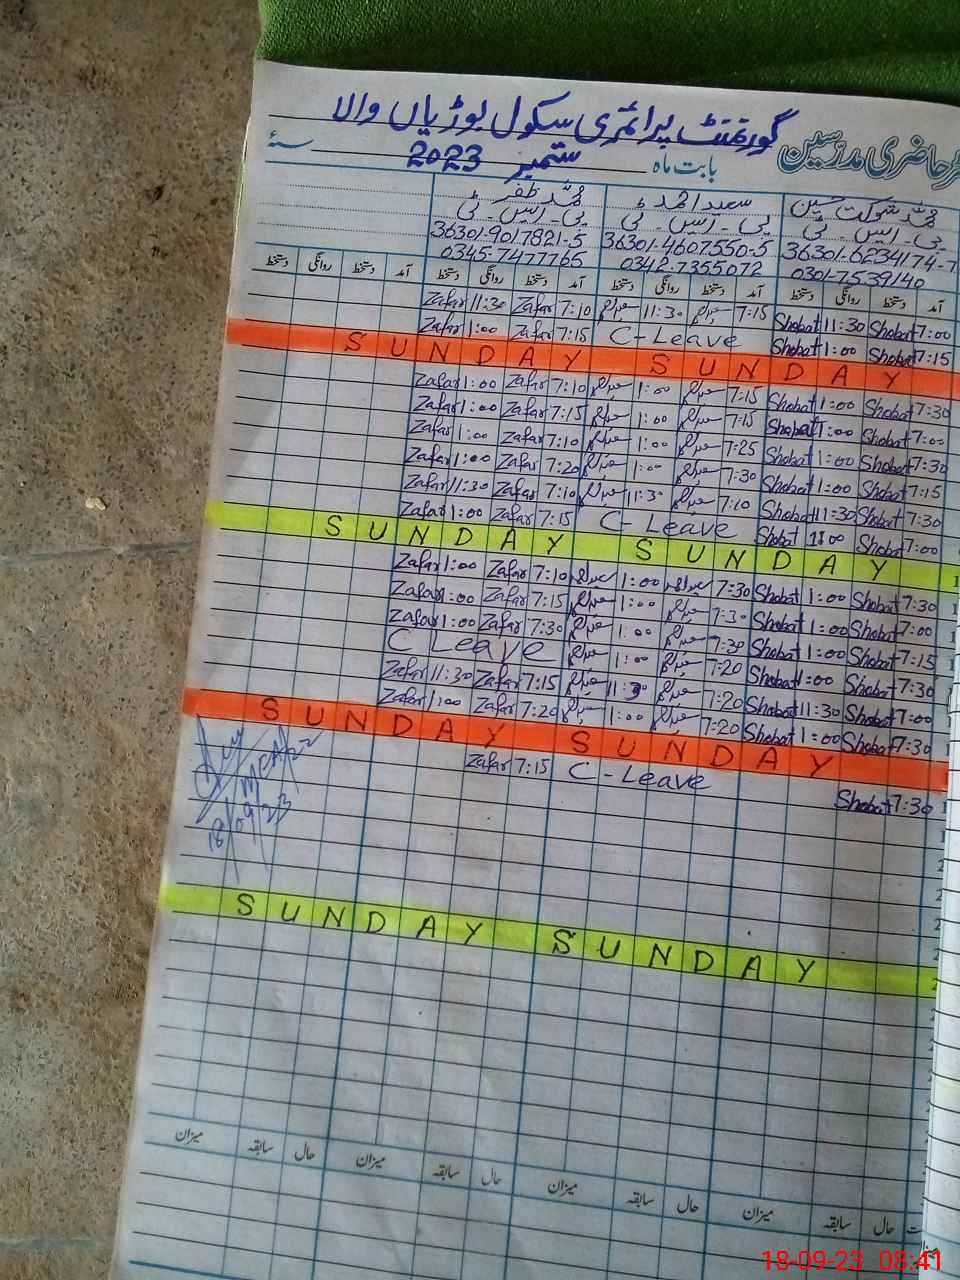 گورنمنٹ پرائمری سکول بوڑیاں والا
حاضری مدرسین
بابت ماہ ستمبر 2023 سنہ
محمد شوکت حسین سعید احمد محمد ظفر
پی - ایس - ٹی پی - ایس - ٹی پی - ایس - ٹی
36301-6234174-7 36301-4607550-5 36301-9017821-5
0301-7539140 0342-7355072 0345-7477765
آمد دستخط روانگی دستخط آمد دستخط روانگی دستخط آمد دستخط روانگی دستخط آمد دستخط روانگی دستخط
Zafar 11:30 Zafar 7:10 11:30 7:15 Shobat 11:30 Shobat 7:00
Zafar 1:00 Zafar 7:15 C-Leave Shobat 1:00 Shobat 7:15
SUNDAY SUNDAY
Zafar 1:00 Zafar 7:10 1:00 7:15 Shobat 1:00 Shobat 7:30
Zafar 1:00 Zafar 7:15 1:00 7:15 Shobat 1:00 Shobat 7:00
Zafar 1:00 Zafar 7:10 1:00 7:25 Shobat 1:00 Shobat 7:30
Zafar 1:00 Zafar 7:20 1:00 7:30 Shobat 1:00 Shobat 7:15
Zafar 11:30 Zafar 7:10 11:30 7:10 Shobat 11:30 Shobat 7:30
Zafar 1:00 Zafar 7:15 C-Leave Shobat 1:00 Shobat 7:00
SUNDAY SUNDAY
Zafar 1:00 Zafar 7:10 1:00 7:30 Shobat 1:00 Shobat 7:30
Zafar 1:00 Zafar 7:15 1:00 7:30 Shobat 1:00 Shobat 7:00
Zafar 1:00 Zafar 7:30 1:00 7:30 Shobat 1:00 Shobat 7:15
C Leave 1:00 7:20 Shobat 1:00 Shobat 7:30
Zafar 11:30 Zafar 7:15 11:30 7:20 Shobat 11:30 Shobat 7:00
Zafar 1:00 Zafar 7:20 1:00 7:20 Shobat 1:00 Shobat 7:30
SUNDAY SUNDAY
Zafar 7:15 C-Leave Shobat 7:30
MEA/22
18/09/23
SUNDAY SUNDAY
میزان حال سابقہ میزان حال سابقہ میزان حال سابقہ میزان حال سابقہ
18-09-23 08:41